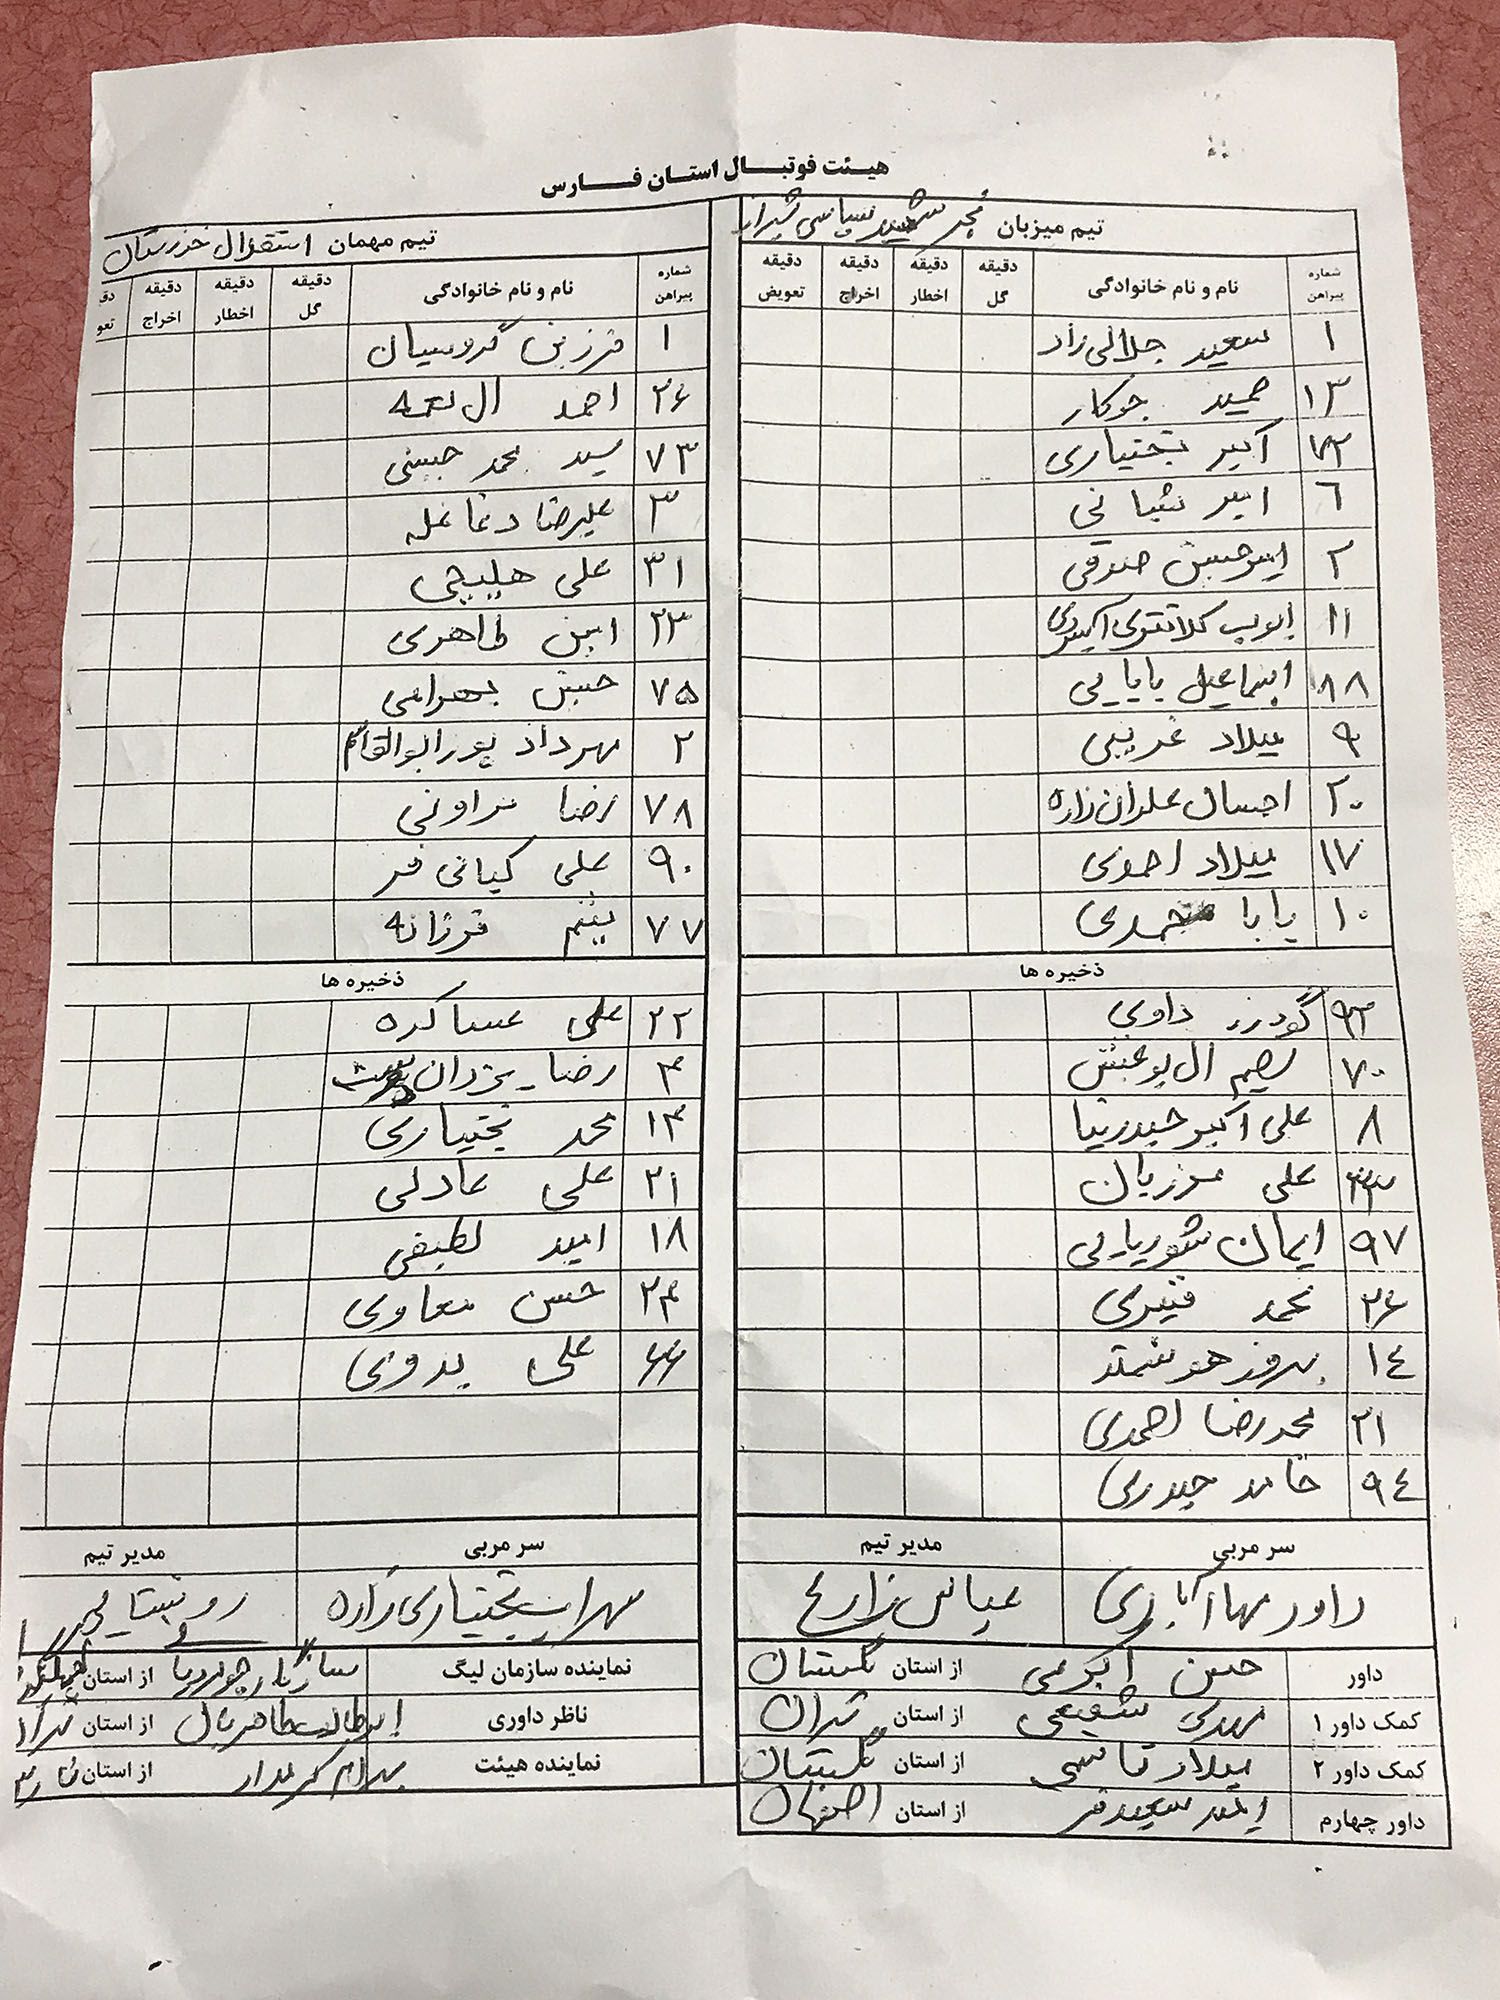 هیئت فوتبال استان فارس
تیم میزبان شهید سپاسی شیراز
شماره پیراهن نام و نام خانوادگی دقیقه گل دقیقه اخطار دقیقه اخراج دقیقه تعویض
۱ سعید جلالی راد
۱۳ حمید جوکار
۷۲ اکبر بختیاری
۶ امیر شبانی
۲ امیرحسین صدقی
۱۱ ایوب کلانتری
۸۸ اسماعیل بابایی
۹ میلاد غریبی
۲۰ احسان علوان زاده
۱۷ میلاد احمدی
۱۰ بابا محمدی
ذخیره ها
۹۲ گودرز داوی
۷۰ نعیم ال بوغبیش
۸ علی اکبر حیدرنیا
۳۳ علی مرزبان
۹۷ ایمان شوریابی
۲۶ محمد قنبری
۱۴ بهروز هوشمند
۲۱ محمدرضا احمدی
۹۴ حامد حیدری
سر مربی مدیر تیم
داود مهاآبادی عباس زارع
داور حسن اکرمی از استان گلستان
کمک داور ۱ مهدی شفیعی از استان تهران
کمک داور ۲ میلاد قاسمی از استان گلستان
داور چهارم امید سعیدفر از استان اصفهان
تیم مهمان استقلال خوزستان
شماره پیراهن نام و نام خانوادگی دقیقه گل دقیقه اخطار دقیقه اخراج
۱ فرزین گروسیان
۲۶ احمد ال نعمه
۷۳ سید محمد حسینی
۳ علیرضا دغاغله
۳۱ علی هلیچی
۲۳ امین طاهری
۷۵ حسین بهرامی
۲ مهرداد پورابوالقاسم
۷۸ رضا مراونی
۹۰ علی کیانی فر
۷۷ میثم فرزانه
ذخیره ها
۲۲ علی عساکره
۴ رضا یزدان پرست
۱۴ محمد بختیاری
۲۱ علی عادلی
۱۸ امید لطیفی
۲۴ حسن معاوی
۶۶ علی بدوی
سر مربی مدیر تیم
سهراب بختیاری زاده روستایی
نماینده سازمان لیگ از استان
ناظر داوری ابوطالب طاهریان از استان
نماینده هیئت بهرام کرمدار از استان فارس